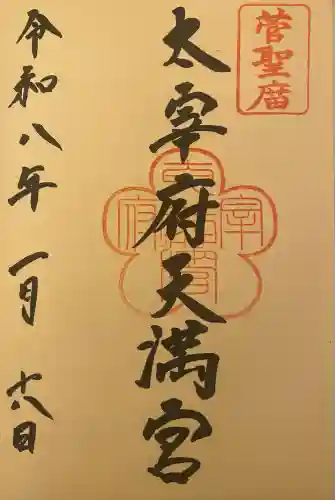 菅聖庿
太宰府天満宮
令和八年一月十八日